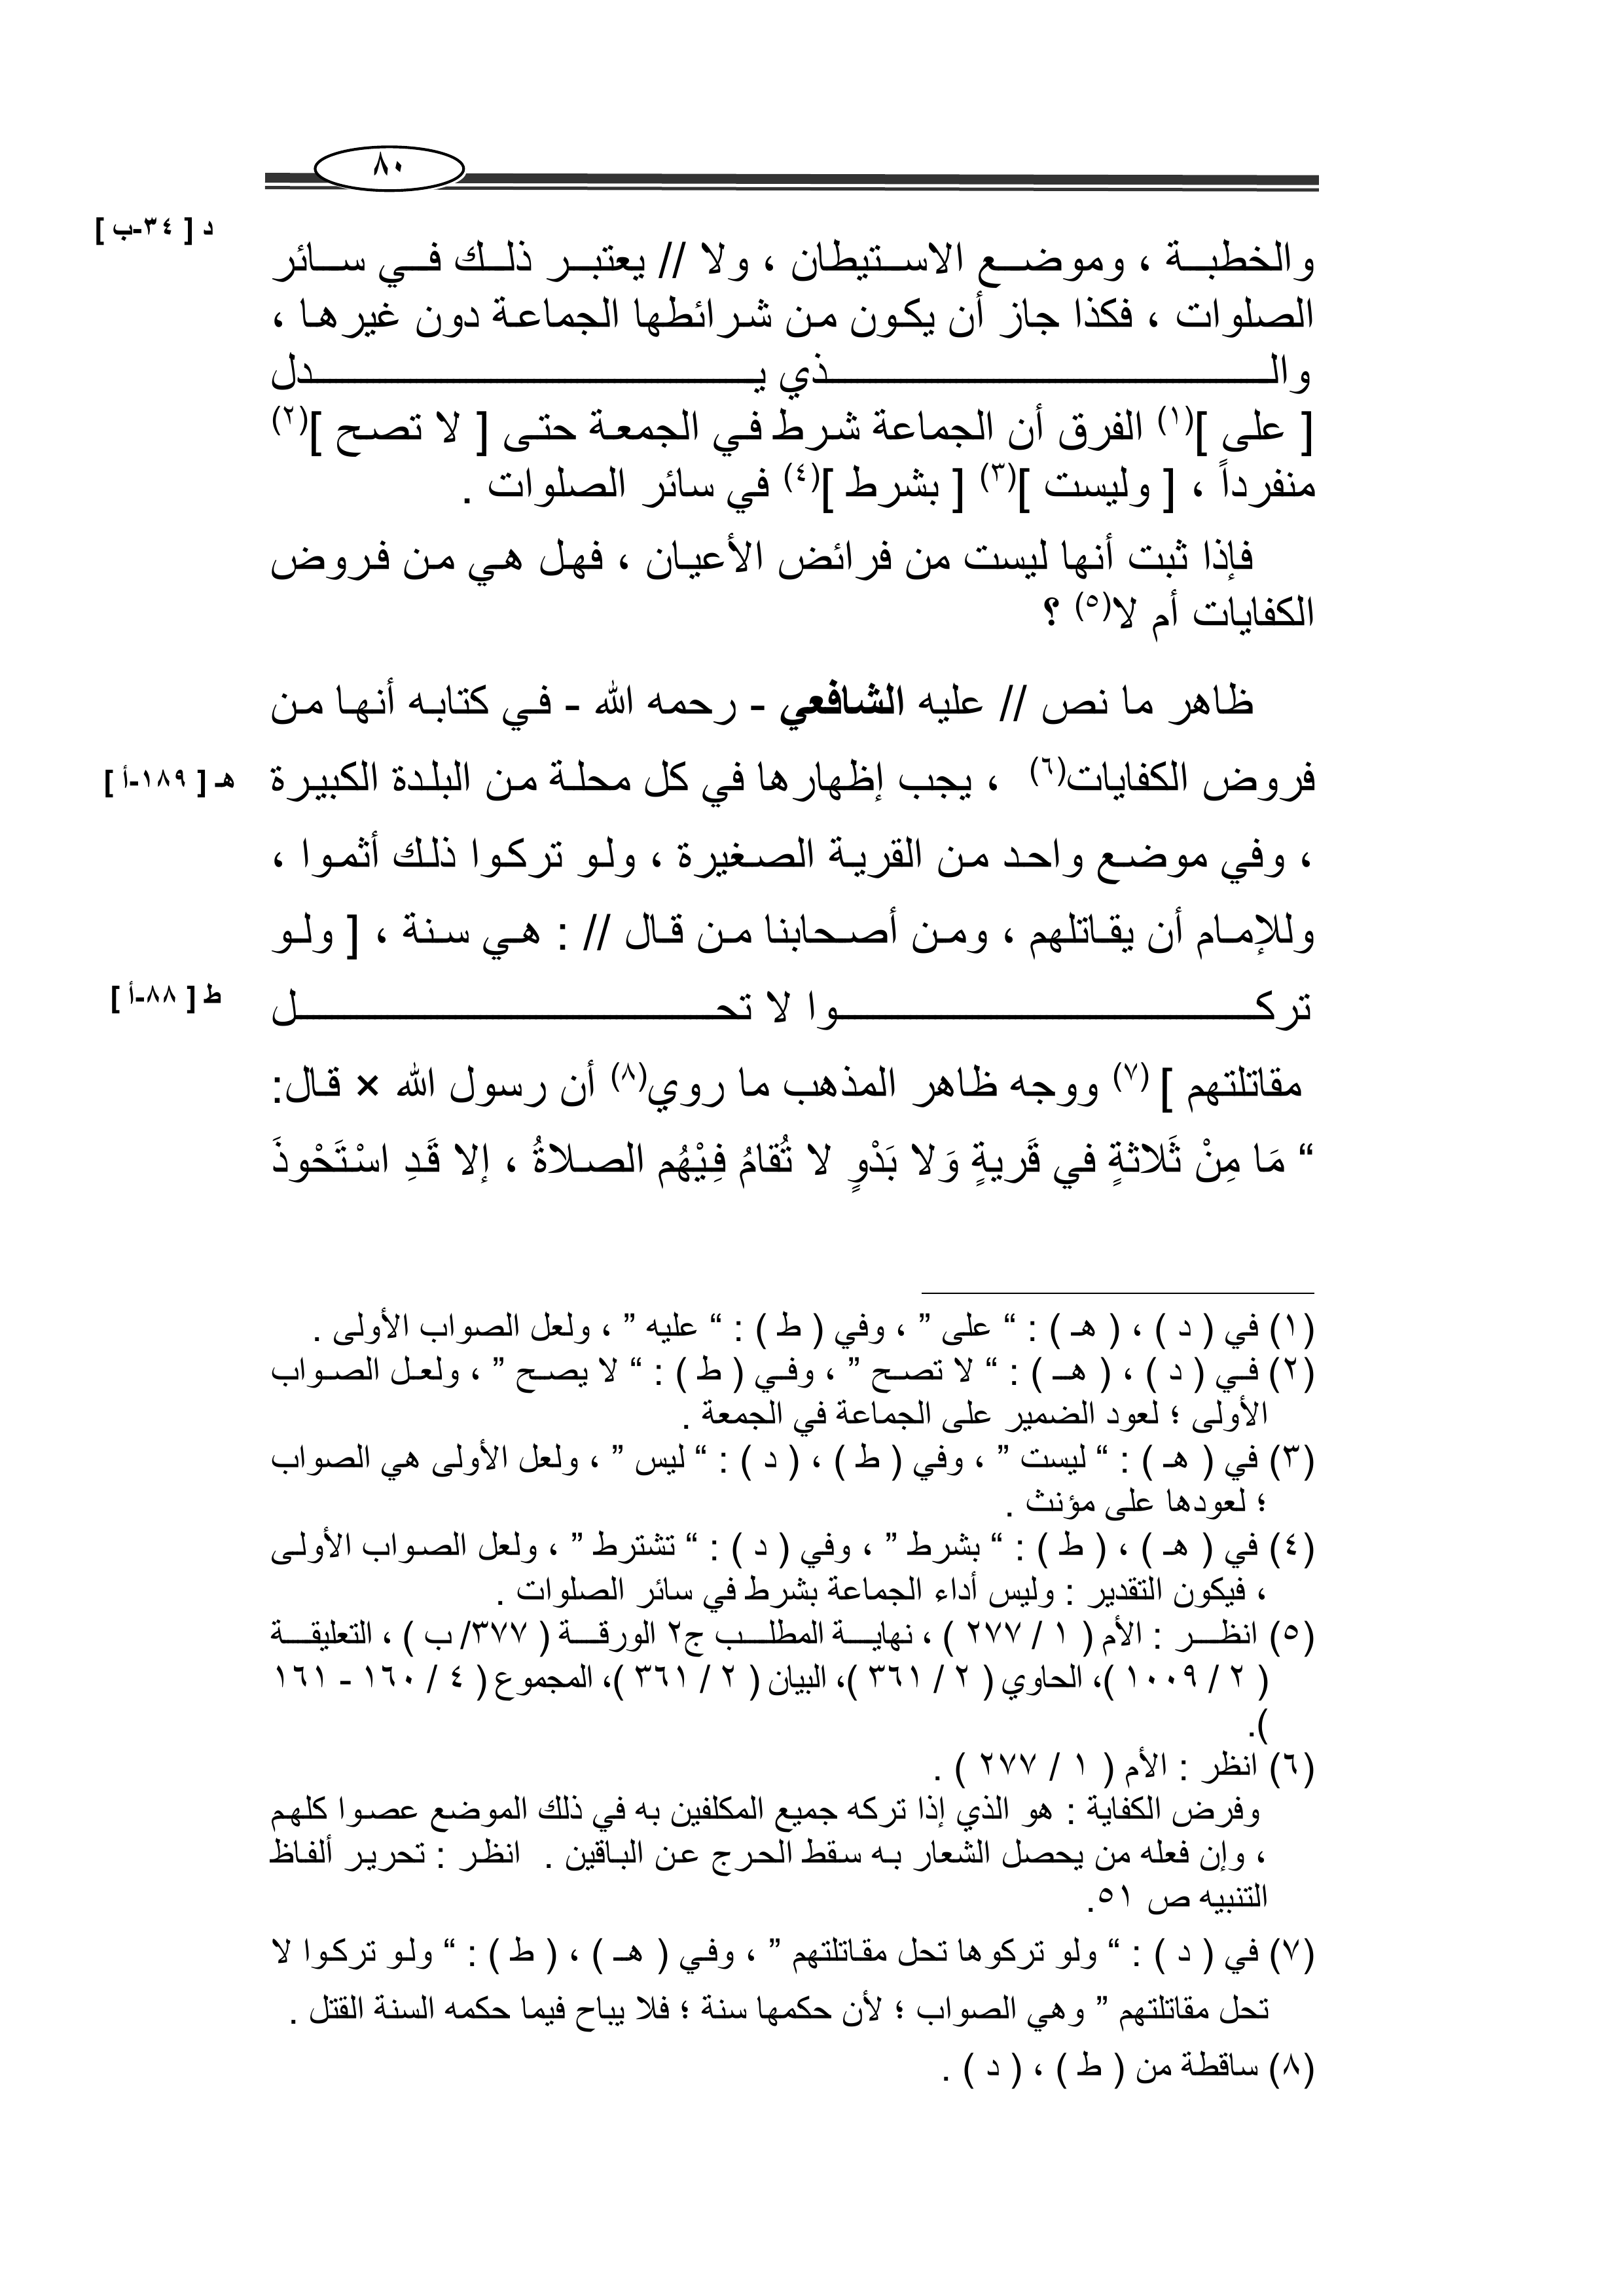 ٨٠
د [ ٣٤-ب ]
والخطبة ، وموضع الاستيطان ، ولا // يعتبر ذلك في سائر
الصلوات ، فكذا جاز أن يكون من شرائطها الجماعة دون غيرها ،
والذي يدل
[ على ](١) الفرق أن الجماعة شرط في الجمعة حتى [ لا تصح ](٢)
منفرداً ، [ وليست ](٣) [ بشرط ](٤) في سائر الصلوات .
فإذا ثبت أنها ليست من فرائض الأعيان ، فهل هي من فروض
الكفايات أم لا(٥) ؟
ظاهر ما نص // عليه الشافعي - رحمه الله - في كتابه أنها من
هـ [ ١٨٩-أ ]
فروض الكفايات(٦) ، يجب إظهارها في كل محلة من البلدة الكبيرة
، وفي موضع واحد من القرية الصغيرة ، ولو تركوا ذلك أثموا ،
وللإمام أن يقاتلهم ، ومن أصحابنا من قال // : هي سنة ، [ ولو
ط [ ٨٨-أ ]
تركوا لا تحل
مقاتلتهم ] (٧) ووجه ظاهر المذهب ما روي(٨) أن رسول الله × قال:
“ مَا مِنْ ثَلاثةٍ في قَريةٍ وَلا بَدْوٍ لا تُقامُ فِيْهُم الصلاةُ ، إلا قَدِ اسْتَحْوذَ
(١) في ( د ) ، ( هـ ) : “ على ” ، وفي ( ط ) : “ عليه ” ، ولعل الصواب الأولى .
(٢) في ( د ) ، ( هـ ) : “ لا تصح ” ، وفي ( ط ) : “ لا يصح ” ، ولعل الصواب
الأولى ؛ لعود الضمير على الجماعة في الجمعة .
(٣) في ( هـ ) : “ ليست ” ، وفي ( ط ) ، ( د ) : “ ليس ” ، ولعل الأولى هي الصواب
؛ لعودها على مؤنث .
(٤) في ( هـ ) ، ( ط ) : “ بشرط ” ، وفي ( د ) : “ تشترط ” ، ولعل الصواب الأولى
، فيكون التقدير : وليس أداء الجماعة بشرط في سائر الصلوات .
(٥) انظر : الأم ( ١ / ٢٧٧ ) ، نهاية المطلب ج٢ الورقة ( ٣٧٧/ ب ) ، التعليقة
( ٢ / ١٠٠٩ )، الحاوي ( ٢ / ٣٦١ )، البيان ( ٢ / ٣٦١ )، المجموع ( ٤ / ١٦٠ - ١٦١
).
(٦) انظر : الأم ( ١ / ٢٧٧ ) .
وفرض الكفاية : هو الذي إذا تركه جميع المكلفين به في ذلك الموضع عصوا كلهم
، وإن فعله من يحصل الشعار به سقط الحرج عن الباقين . انظر : تحرير ألفاظ
التنبيه ص ٥١.
(٧) في ( د ) : “ ولو تركوها تحل مقاتلتهم ” ، وفي ( هـ ) ، ( ط ) : “ ولو تركوا لا
تحل مقاتلتهم ” وهي الصواب ؛ لأن حكمها سنة ؛ فلا يباح فيما حكمه السنة القتل .
(٨) ساقطة من ( ط ) ، ( د ) .